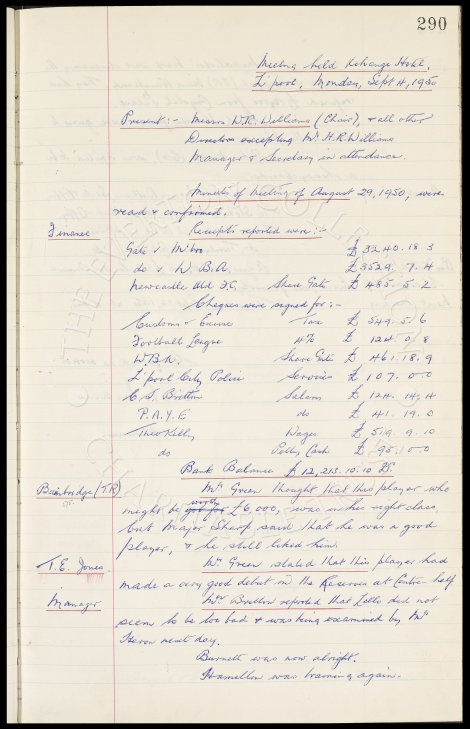 290
Meeting held Exchange Hotel,
L'pool, Monday, Sept 4, 1950
Present :- Messrs W.R. Williams (Chair), & all other
Directors excepting Mr H.R. Williams
Manager & Secretary in attendance.
Minutes of Meeting of August 29, 1950, were
read & confirmed.
Finance Receipts reported were :-
Gate v M'bro £3240. 18. 3
do v W.B.A. £3529. 7. 4
Newcastle Utd F.C. Share Gate £485. 5. 2
Cheques were signed for :-
Customs & Excise Tax £549. 5. 6
Football League 4% £124. 0. 8
W.B.A. Share Gate £461. 18. 9
L'pool City Police Services £107. 0. 0
C.S. Britton Salary £124. 14. 4
P.A.Y.E do £41. 19. 0
Theo Kelly Wages £519. 9. 10
do Petty Cash £95. 0. 0
Bank Balance £12,213. 10. 10
Bainbridge (T.R) Mr Green thought that this player who
might be worth £6,000, was in the right class,
but Major Sharp said that he was a good
player, & he still liked him.
T.E. Jones Mr Green stated that this player had
made a very good debut in the Reserves at Centre-half
Manager Mr Britton reported that Catto did not
seem to be too bad & was being examined by Mr
Heron next day.
Burnett was now alright.
Hamilton was training again.